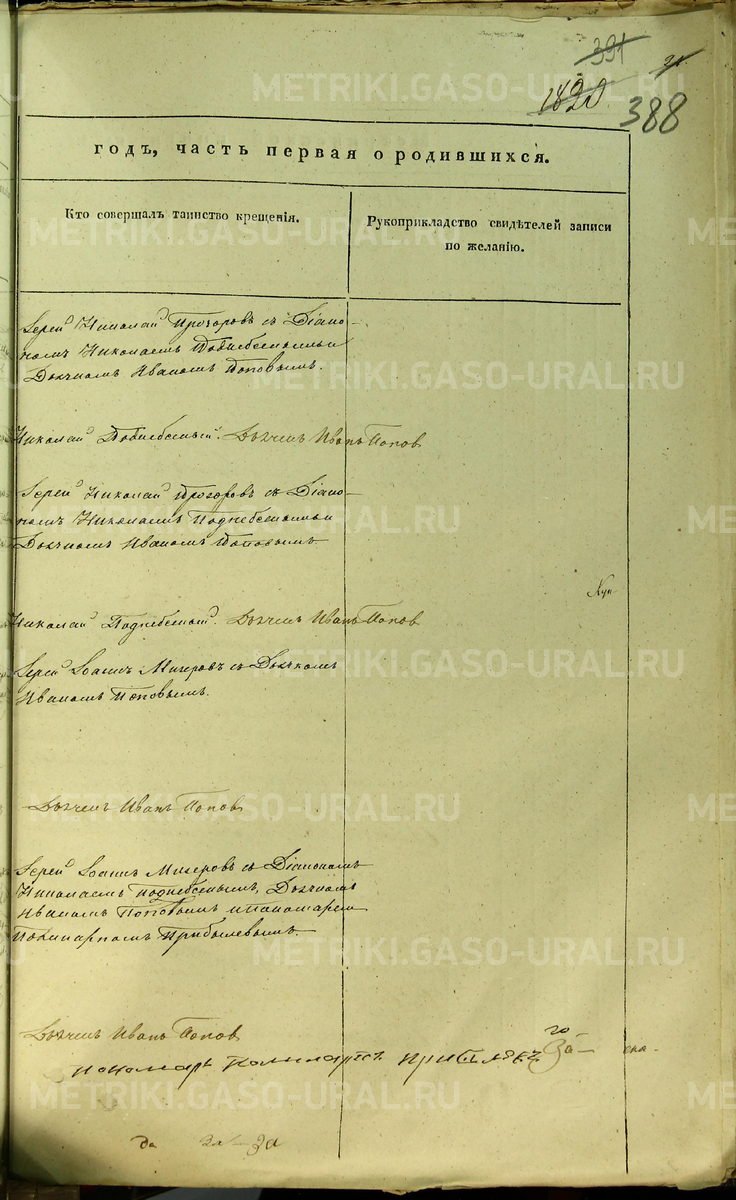 391
1820
388
годъ, часть первая о родившихся.
Кто совершалъ таинство крещенія.
Рукоприкладство свидѣтелей записи
по желанію.
Іерей Николай Прозоровъ съ Діако-
номъ Николаемъ Поднебеснымъ и
Дьячкомъ Иваномъ Поповымъ.
Николай Поднебесный. Дьячекъ Иванъ Попов
Іерей Николай Прозоровъ съ Діако-
номъ Николаемъ Поднебеснымъ и
Дьячкомъ Иваномъ Поповымъ
Николай Поднебесный. Дьячекъ Иванъ Попов
Іерей Іоаннъ Мизеровъ съ Дьячкомъ
Иваномъ Поповымъ.
Дьячекъ Иванъ Попов
Іерей Іоаннъ Мизеровъ съ Діакономъ
Николаемъ Поднебеснымъ, Дьячкомъ
Иваномъ Поповымъ и пономаремъ
Поликарпомъ Прибылевымъ.
Дьячекъ Иванъ Попов
пономарь Поликарпъ Прибылевъ
METRIKI.GASO-URAL.RU